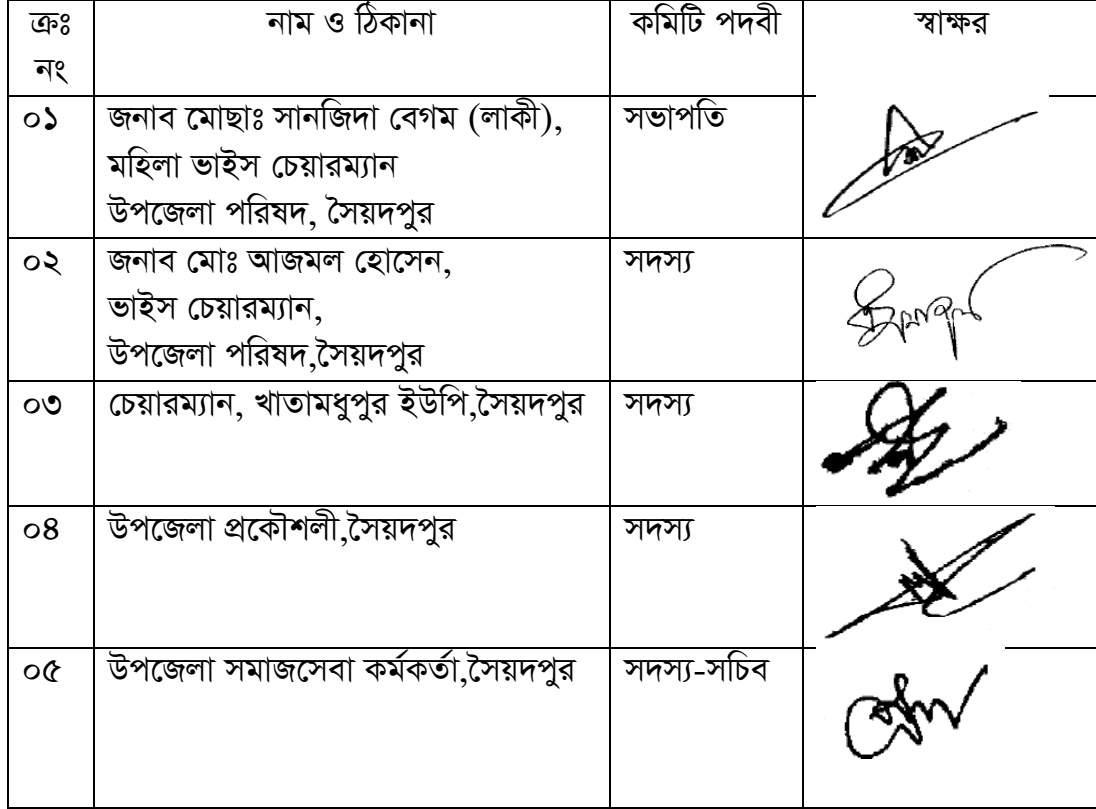 ক্রঃ নং নাম ও ঠিকানা কমিটি পদবী স্বাক্ষর
০১ জনাব মোছাঃ সানজিদা বেগম (লাকী), সভাপতি
মহিলা ভাইস চেয়ারম্যান
উপজেলা পরিষদ, সৈয়দপুর
০২ জনাব মোঃ আজমল হোসেন, সদস্য
ভাইস চেয়ারম্যান,
উপজেলা পরিষদ,সৈয়দপুর
০৩ চেয়ারম্যান, খাতামধুপুর ইউপি,সৈয়দপুর সদস্য
০৪ উপজেলা প্রকৌশলী,সৈয়দপুর সদস্য
০৫ উপজেলা সমাজসেবা কর্মকর্তা,সৈয়দপুর সদস্য-সচিব